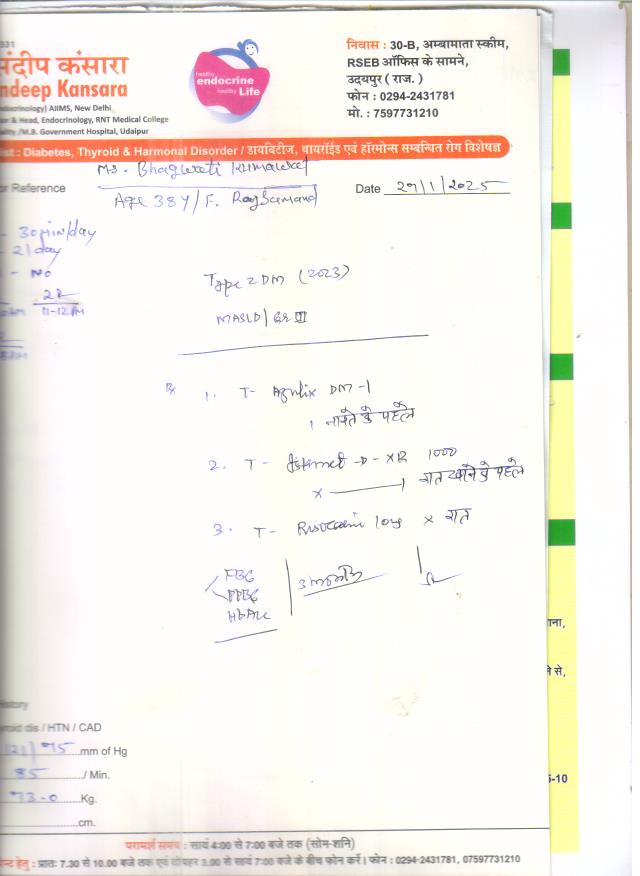 संदीप कंसारा
ndeep Kansara
AIIMS, New Delhi
& Head, Endocrinology, RNT Medical College
/M.B. Government Hospital, Udaipur
healthy
endocrine
healthy Life
निवास : 30-B, अम्बामाता स्कीम,
RSEB ऑफिस के सामने,
उदयपुर ( राज. )
फोन : 0294-2431781
मो. : 7597731210
: Diabetes, Thyroid & Harmonal Disorder / डायबिटीज, थायरॉईड एवं हॉरमोन्स सम्बन्धित रोग विशेषज्ञ
Reference
Ms. Bhagwati Kumawat
Age 38Y/F. Rajsamand
Date 29/1/2025
- 30 min/day
- 2/day
- No
11-12 PM
Type 2 DM (2023)
MASLD/GR III
Rx 1. T- DM-1
1 नाश्ते के पहले
2. T- -D-XR 1000
x 1 रात खाने के पहले
3. T- 10mg x रात
FBG
PPBG
HbA1c
3 months
History
dis / HTN / CAD
121/95 mm of Hg
85 / Min.
73-0 Kg.
cm.
परामर्श समय : सायं 4:00 से 7:00 बजे तक (सोम-शनि)
हेतु : प्रातः 7.30 से 10.00 बजे तक एवं दोपहर 3.00 से सायं 7:00 बजे के बीच फोन करें। फोन : 0294-2431781, 07597731210